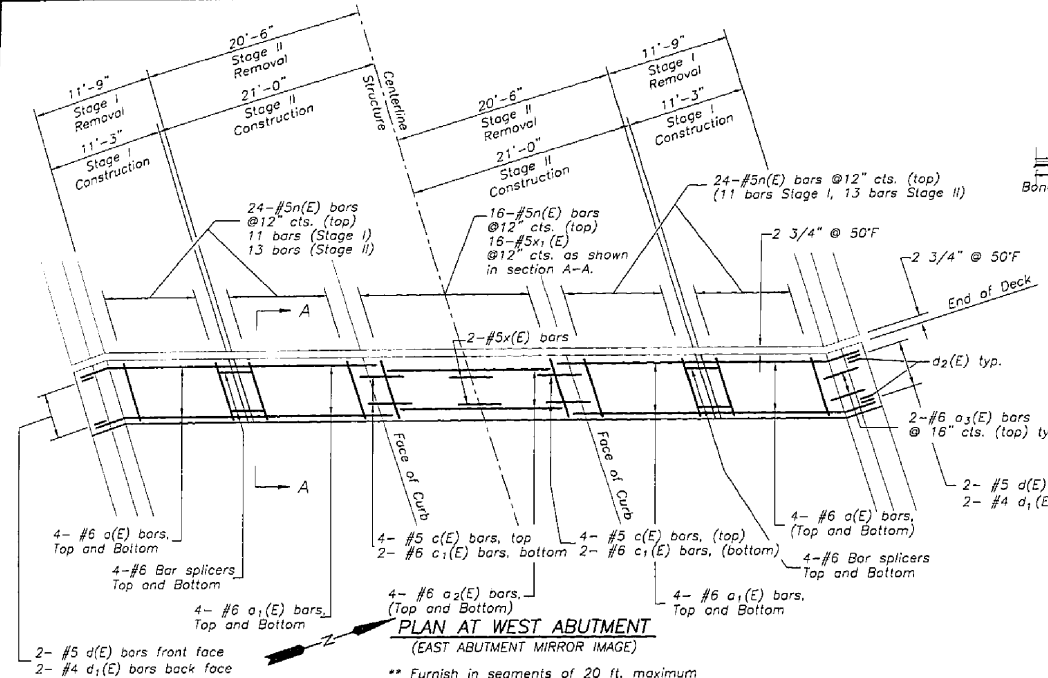 11'-9"
Stage I
Removal
11'-3"
Stage I
Construction
20'-6"
Stage II
Removal
21'-0"
Stage II
Construction
Centerline
Structure
20'-6"
Stage II
Removal
21'-0"
Stage II
Construction
11'-9"
Stage I
Removal
11'-3"
Stage I
Construction
24-#5n(E) bars
@12" cts. (top)
11 bars (Stage I)
13 bars (Stage II)
16-#5n(E) bars
@12" cts. (top)
16-#5x1(E)
@12" cts. as shown
in section A-A.
24-#5n(E) bars @12" cts. (top)
(11 bars Stage I, 13 bars Stage II)
2 3/4" @ 50°F
2 3/4" @ 50°F
End of Deck
A
2-#5x(E) bars
d2(E) typ.
2-#6 a3(E) bars
@ 16" cts. (top)
Face of Curb
Face of Curb
A
2- #5 d(E)
2- #4 d1(E
4- #6 a(E) bars,
Top and Bottom
4-#6 Bar splicers
Top and Bottom
4- #6 a1(E) bars,
Top and Bottom
2- #5 d(E) bars front face
2- #4 d1(E) bars back face
4- #5 c(E) bars, top
2- #6 c1(E) bars, bottom
4- #5 c(E) bars, (top)
2- #6 c1(E) bars, (bottom)
4- #6 a2(E) bars,
(Top and Bottom)
4- #6 a(E) bars,
(Top and Bottom)
4-#6 Bar splicers
Top and Bottom
4- #6 a1(E) bars,
Top and Bottom
N
PLAN AT WEST ABUTMENT
(EAST ABUTMENT MIRROR IMAGE)
** Furnish in segments of 20 ft. maximum